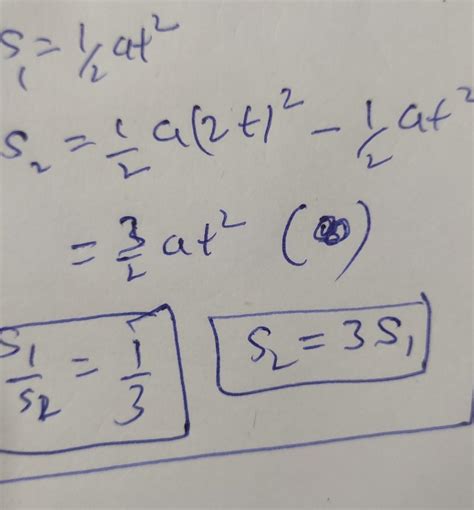 S₁ = 1/2 at²
S₂ = 1/2 a(2t)² - 1/2 at²
= 3/2 at² ( )
S₁/S₂ = 1/3
S₂ = 3S₁